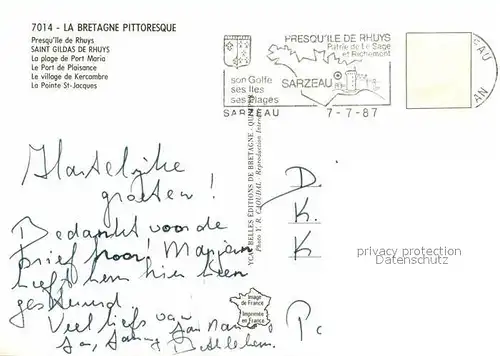 7014 - LA BRETAGNE PITTORESQUE
Presqu'île de Rhuys
SAINT GILDAS DE RHUYS
La plage de Port Maria
Le Port de Plaisance
Le village de Kercambre
La Pointe St-Jacques
PRESQU'ILE DE RHUYS
Patrie de Le Sage
et Richemont
son Golfe
ses Iles
ses Plages
SARZEAU
SARZEAU
7-7-87
Hartelijke
groeten!
Bedankt voor de
brief hoor! Marjan
heeft hem hier heen
gestuurd.
Veel liefs van
Bethlehem.
YCA BELLES ÉDITIONS DE BRETAGNE, QUIMPER
Photo Y. R. CAOUDAL - Reproduction Interdite
Image
de France
Imprimée
en France
D
K.
K
privacy protection
Datenschutz